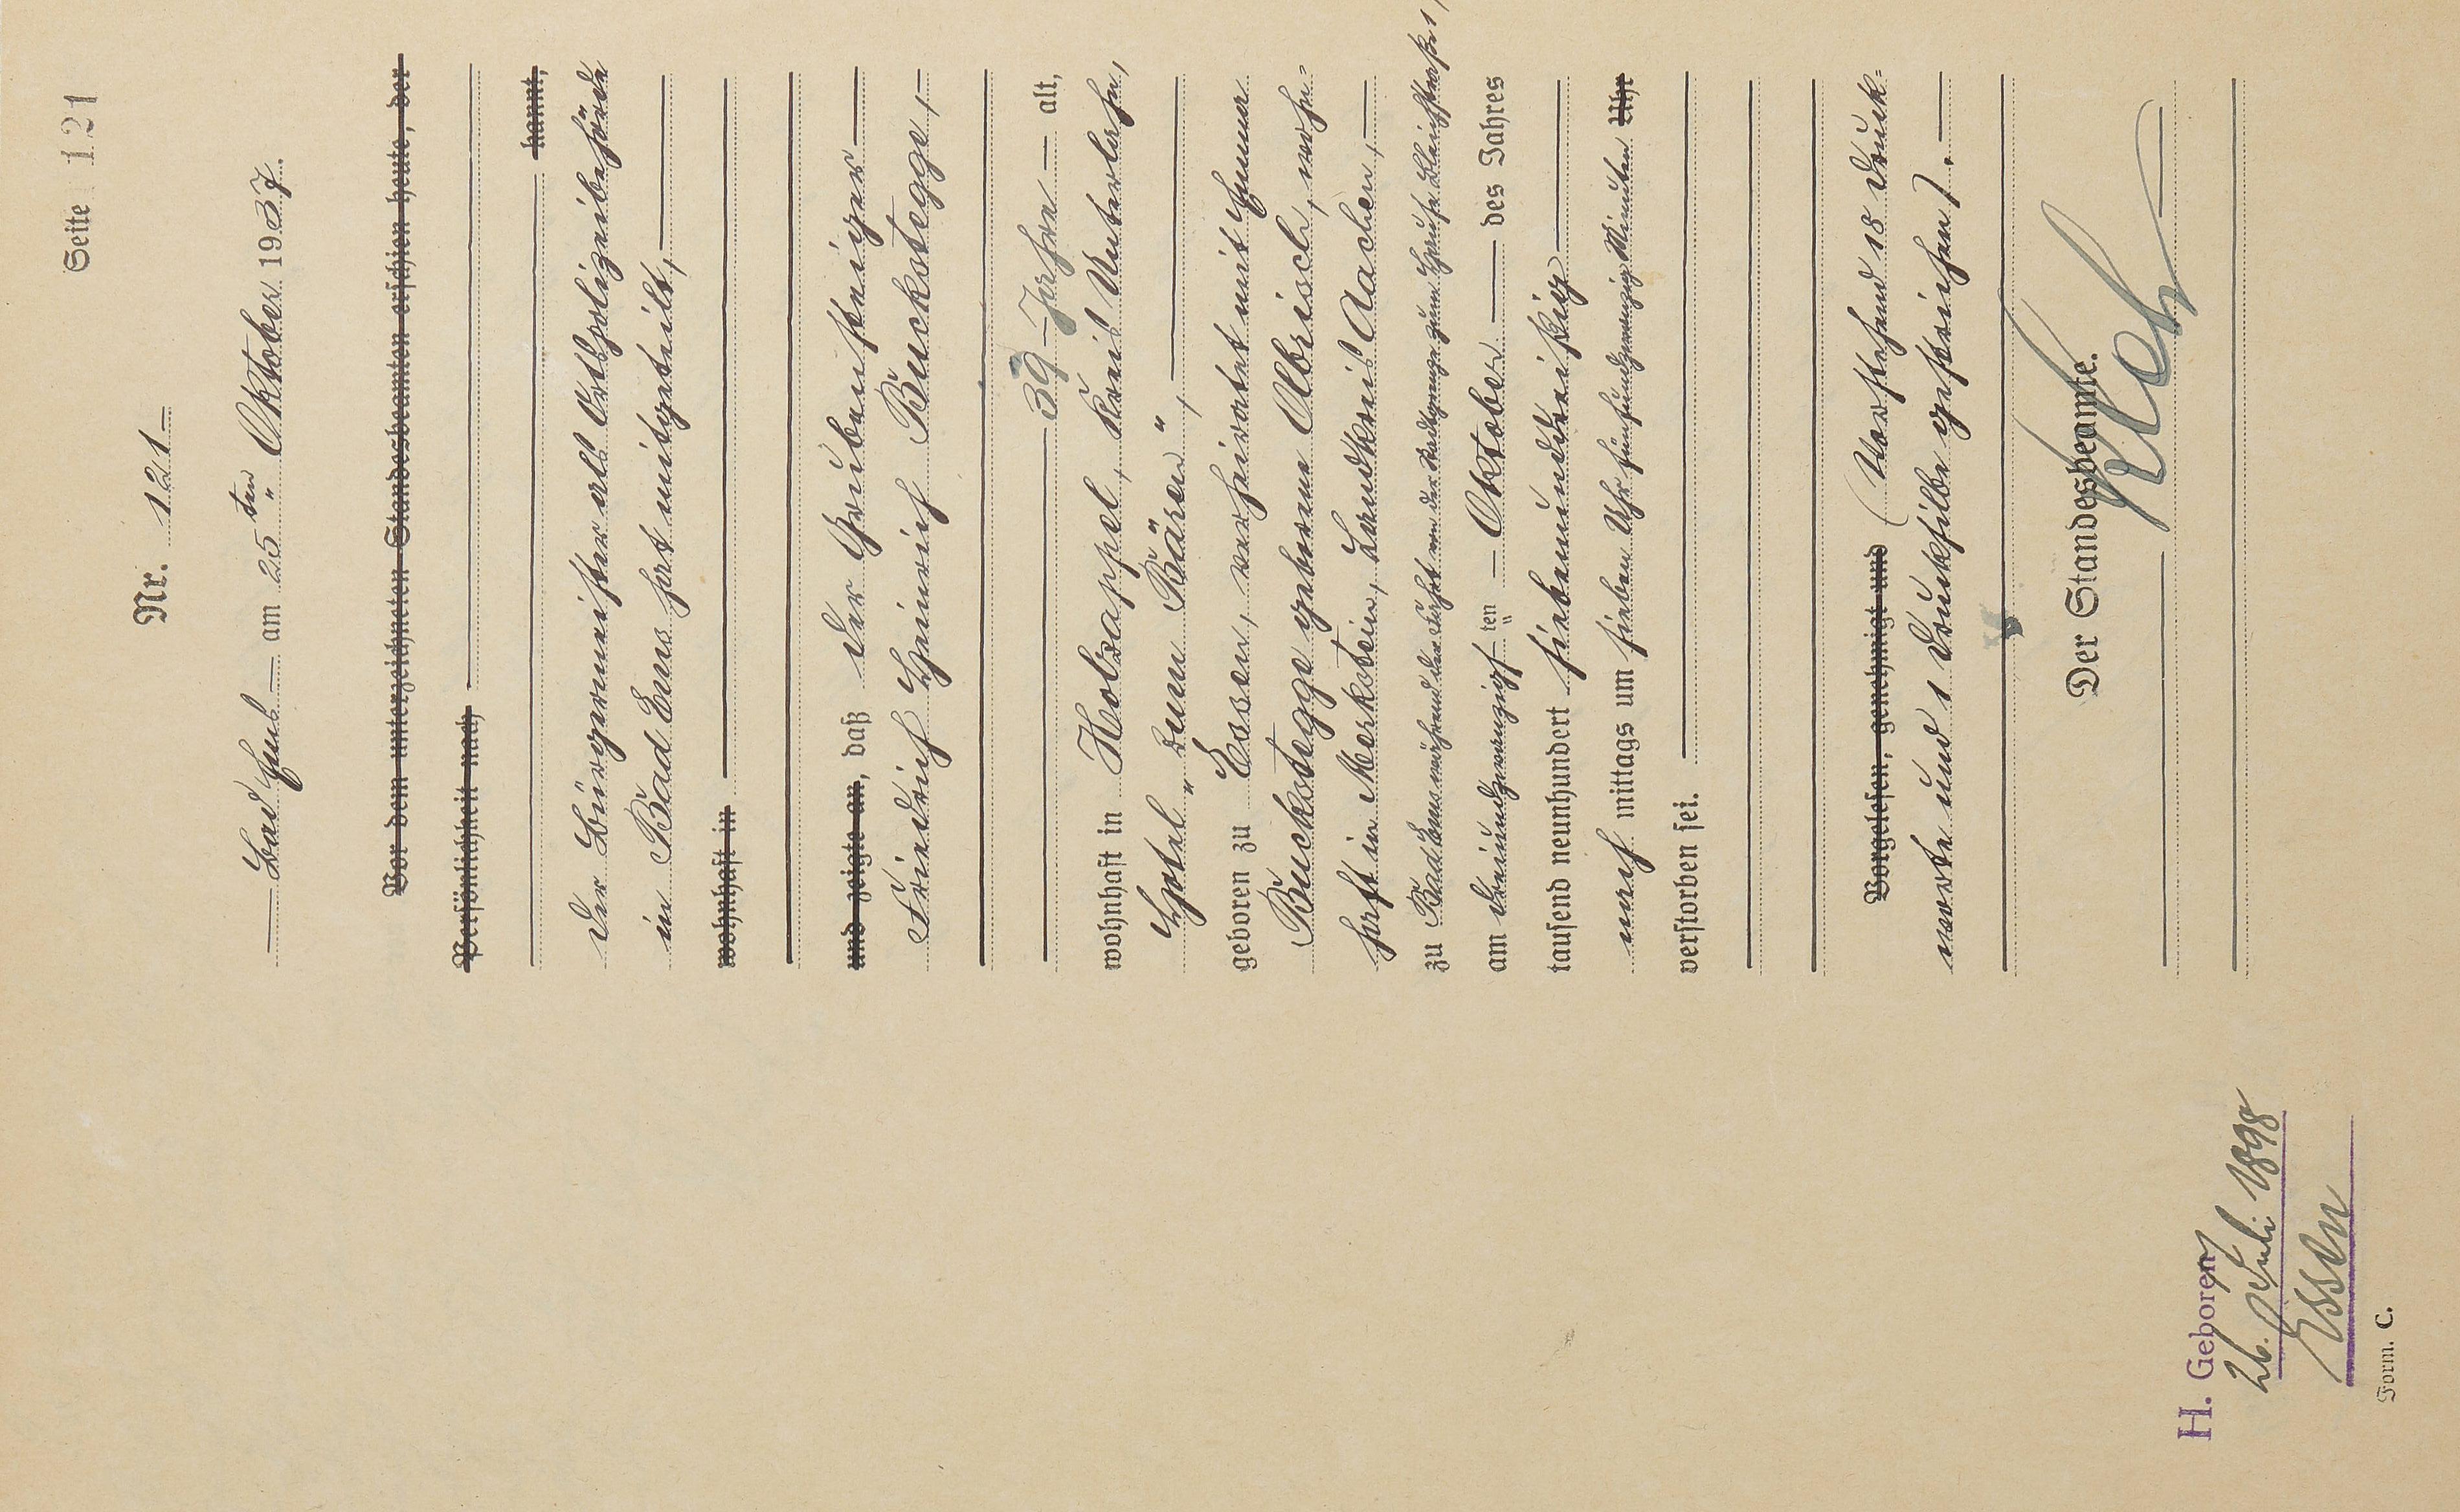 Seite 121
Nr. 121
Bad Ems am 25ten Oktober 1937.
Vor dem unterzeichneten Standesbeamten erschien heute, der
Persönlichkeit nach
kannt,
Der Bürgermeister als Ortspolizeibehörde
in Bad Ems hat mitgeteilt,
wohnhaft in
und zeigte an, daß der Grubensteiger
Friedrich Heinrich Buckstegge,
39 Jahre alt,
wohnhaft in Holzappel, Kreis Unterlahn,
Hotel „zum Bären",
geboren zu Essen, verheiratet mit Emma
Buckstegge geborene Olbrisch, wohn-
haft in Merkstein, Landkreis Aachen,
zu Bad Ems während der Fahrt von der zum Hause
am dreiundzwanzigsten Oktober des Jahres
tausend neunhundert siebenunddreißig
nach mittags um sieben Uhr fünfundzwanzig Minuten Uhr
verstorben sei.
Vorgelesen, genehmigt und (Vorstehend 18 Druck-
worte und 1 Drucksilbe gestrichen).
Der Standesbeamte.
H. Geboren
26. Juli 1898
Essen
Form. C.